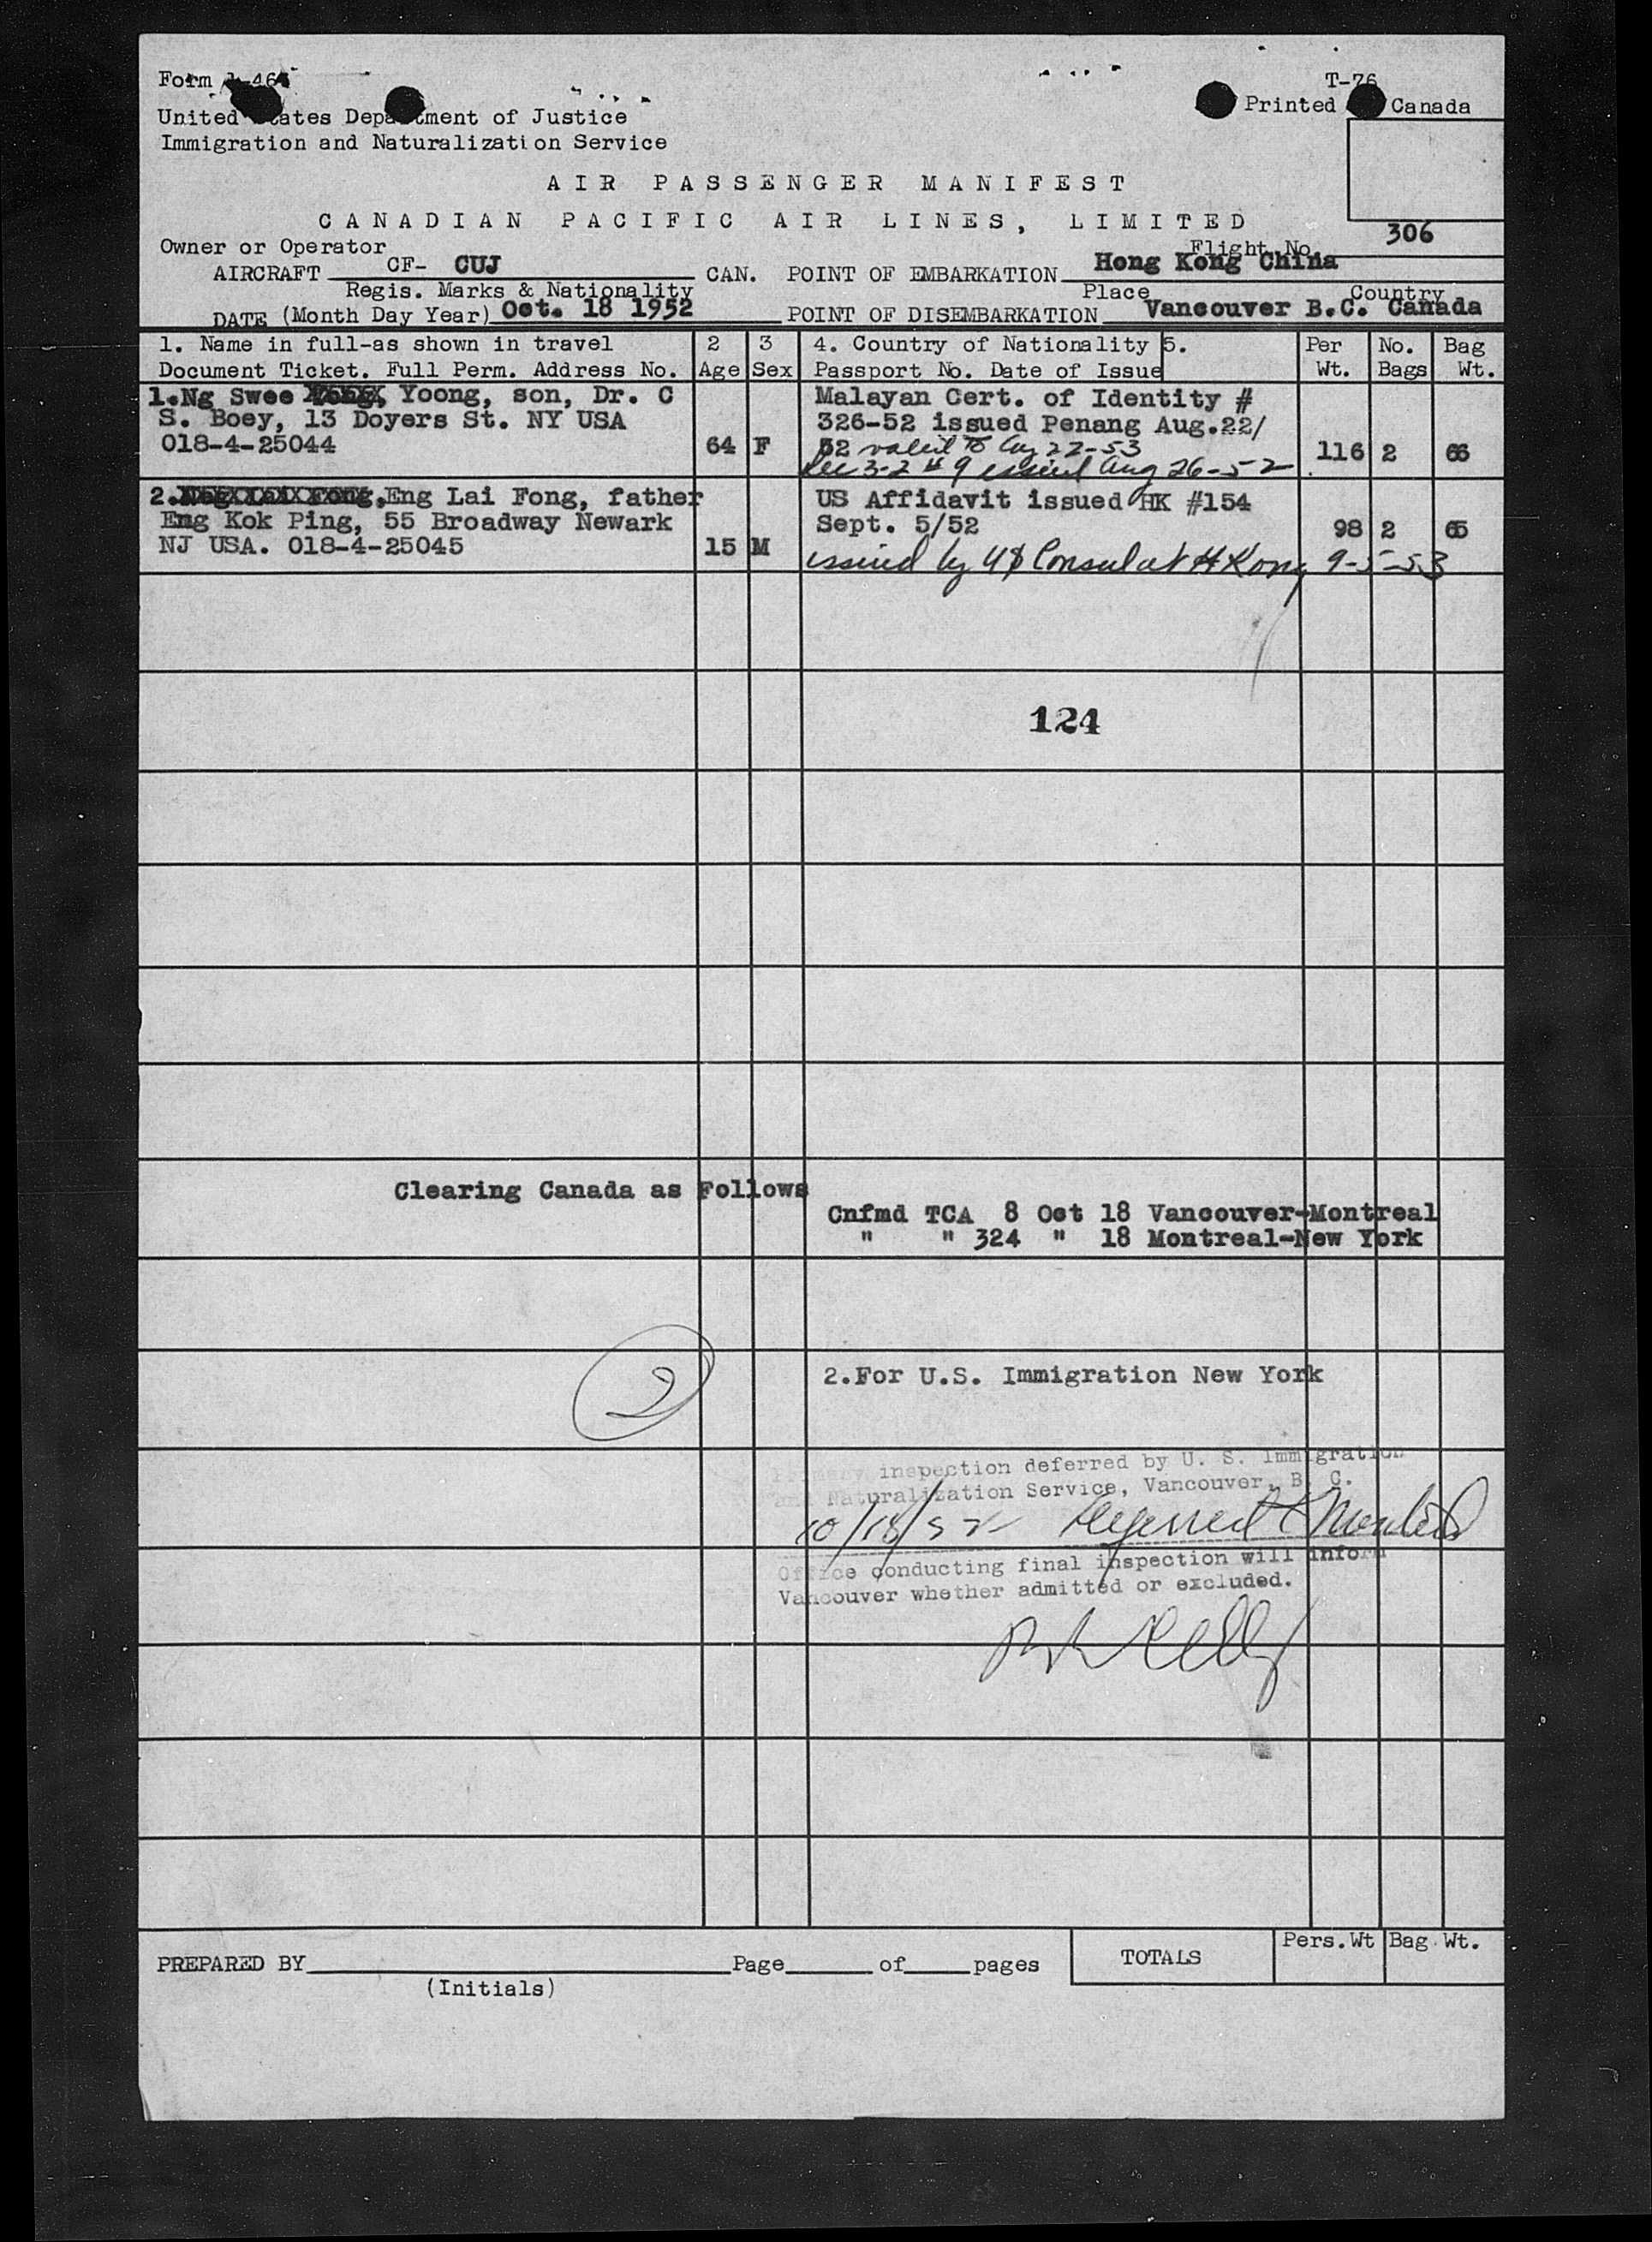 Form I-466
T-76
United States Department of Justice
Printed Canada
Immigration and Naturalization Service
AIR PASSENGER MANIFEST
CANADIAN PACIFIC AIR LINES, LIMITED
Owner or Operator
Flight No. 306
AIRCRAFT CF- CUJ CAN. POINT OF EMBARKATION Hong Kong China
Regis. Marks & Nationality Place Country
DATE (Month Day Year) Oct. 18 1952 POINT OF DISEMBARKATION Vancouver B.C. Canada
1. Name in full-as shown in travel 2 3 4. Country of Nationality 5. Per No. Bag
Document Ticket. Full Perm. Address No. Age Sex Passport No. Date of Issue Wt. Bags Wt.
1.Ng Swee Yoong, son, Dr. C Malayan Cert. of Identity #
S. Boey, 13 Doyers St. NY USA 326-52 issued Penang Aug.22/
018-4-25044 64 F 52 valid to Aug 22-53 116 2 66
Sec 3-2 # 9 issued Aug 26-52
2. Eng Lai Fong, father US Affidavit issued HK #154
Eng Kok Ping, 55 Broadway Newark Sept. 5/52 98 2 65
NJ USA. 018-4-25045 15 M
issued by US Consul at H Kong 9-5-53
124
Clearing Canada as Follows
Cnfmd TCA 8 Oct 18 Vancouver-Montreal
" " 324 " 18 Montreal-New York
2
2.For U.S. Immigration New York
Primary inspection deferred by U. S. Immigration
and Naturalization Service, Vancouver, B. C.
10/18/52 Deferred to Montreal
Office conducting final inspection will inform
Vancouver whether admitted or excluded.
Pers.Wt Bag Wt.
PREPARED BY Page of pages TOTALS
(Initials)